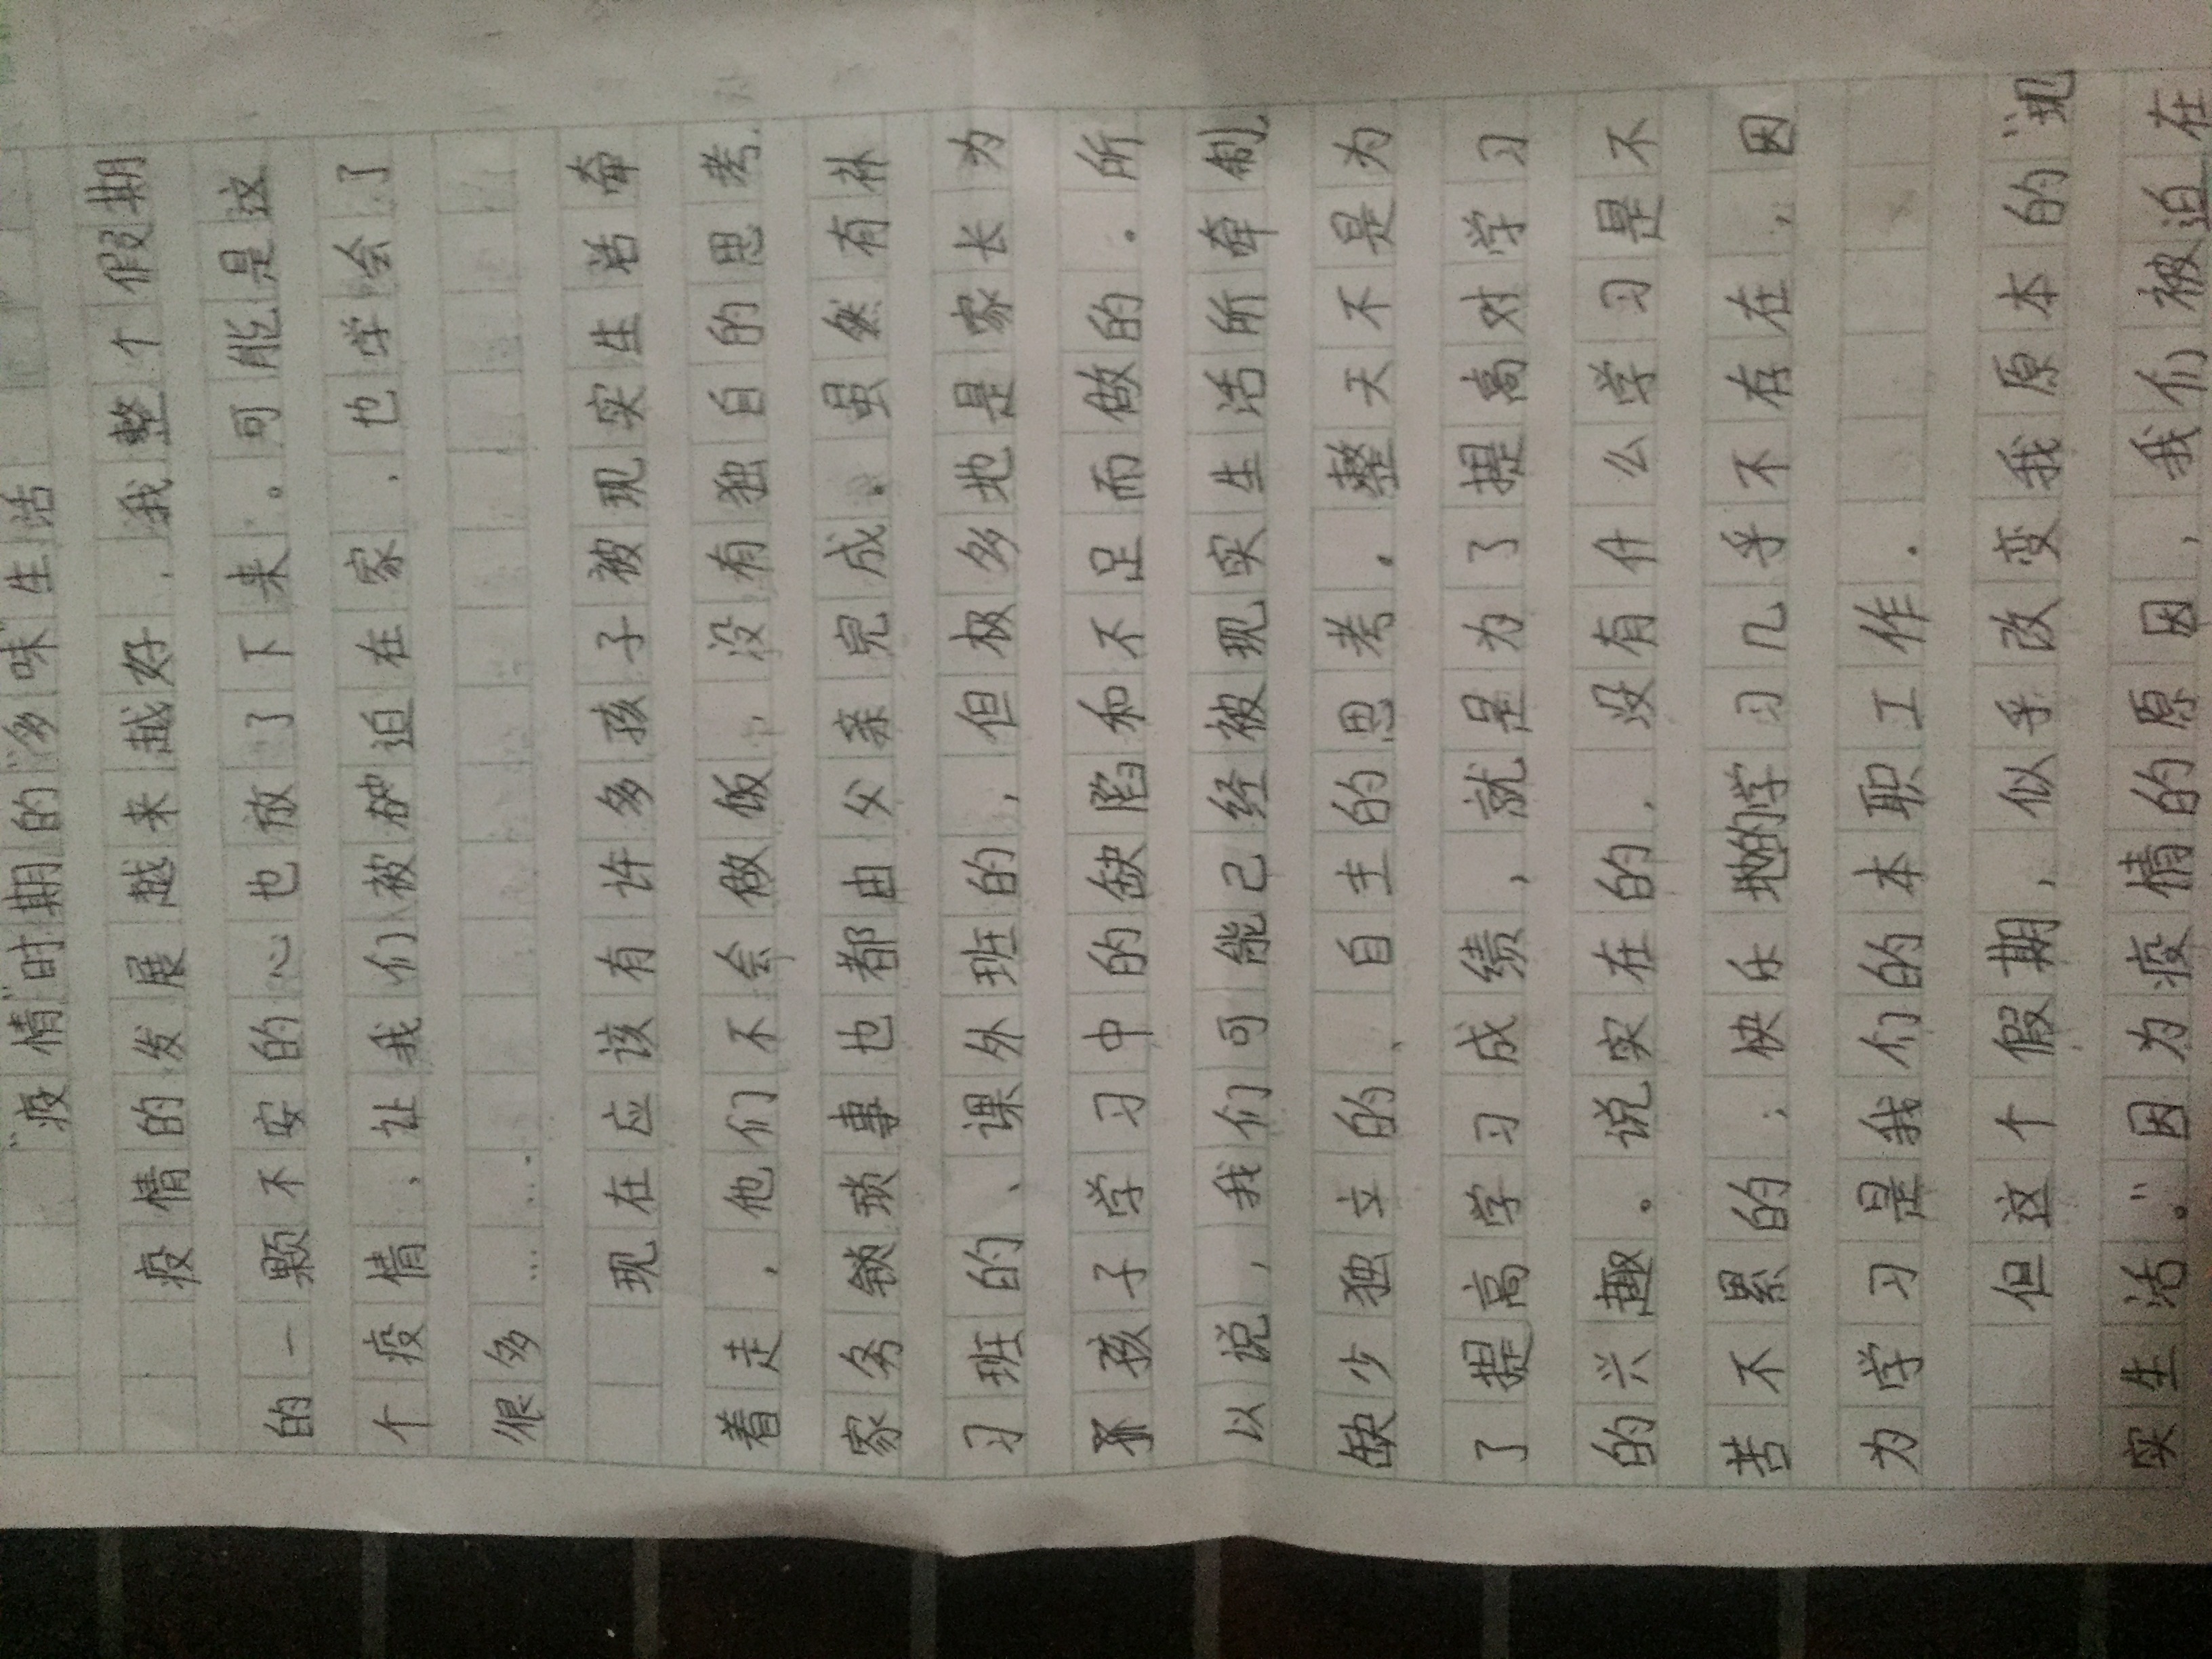 "疫情"时期的"多味"生活
疫情的发展越来越好，我整个假期
的一颗不安的心也放了下来。可能是这
个疫情，让我们被迫在家，也学会了
很多……
现在应该有许多孩子被现实生活牵
着走，他们不会做饭，没有独自的思考．
家务锁琐事也都由父亲完成。虽然有补
习班的、课外班的，但极多地是家长为
孩子学习中的缺陷和不足而做的．所
以说，我们可能己经被现实生活所牵制
缺少独立的、自主的思考．整天不是为
了提高学习成绩，就是为了提高对学习
的兴趣。说实在的，没有什么学习是不
苦不累的；快乐地的学习几乎不存在，因
为学习是我们的本职工作．
但这个假期，似乎改变我原本的"现
实生活。"因为疫情的原因，我们被迫在